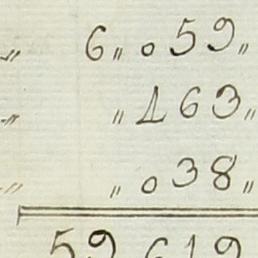 „ 6 „ 059 „
„ „ 163 „
„ „ 038 „
59 619